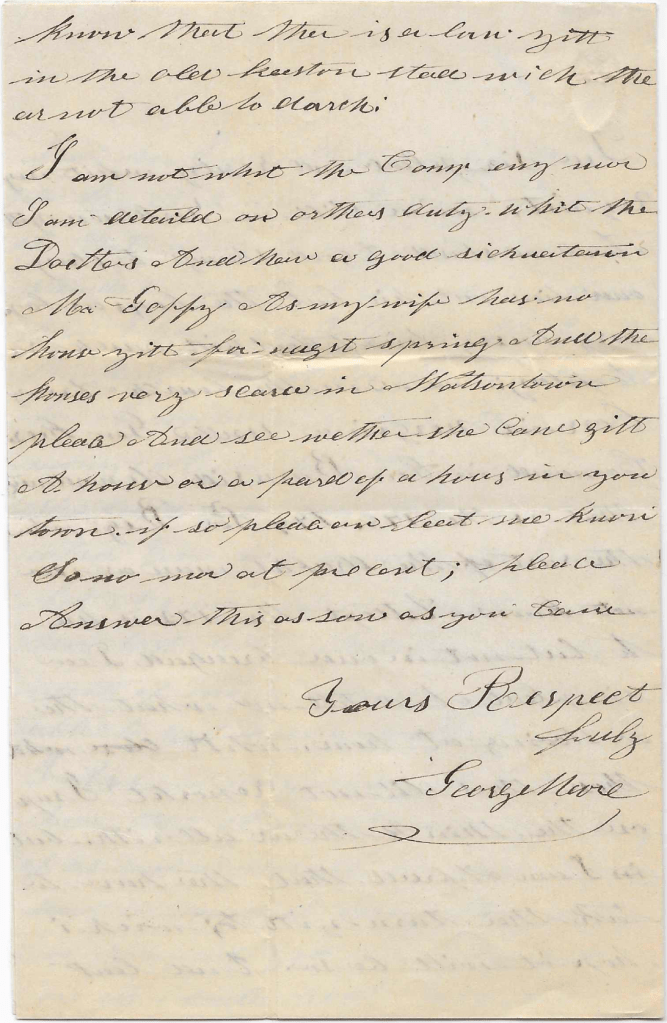 know that ther is a law yitt
in the old keeston stad wich the
ar not able to darch:
I am not whit the Comp eny mor
I am detaild on orthers duty whit the
Docttors And hav a good sichuatown
Mr Goppy As my wife has no
hous yitt for nagst spring And the
houses very scarce in Watsontown
pleac And see wether she Cane gitt
A hous or a pard of a hous in you
town. if so pleac an leat me know
So no mor at precent; pleace
Answer this as son as you Cane
Yours Respect
fuly
George Moore